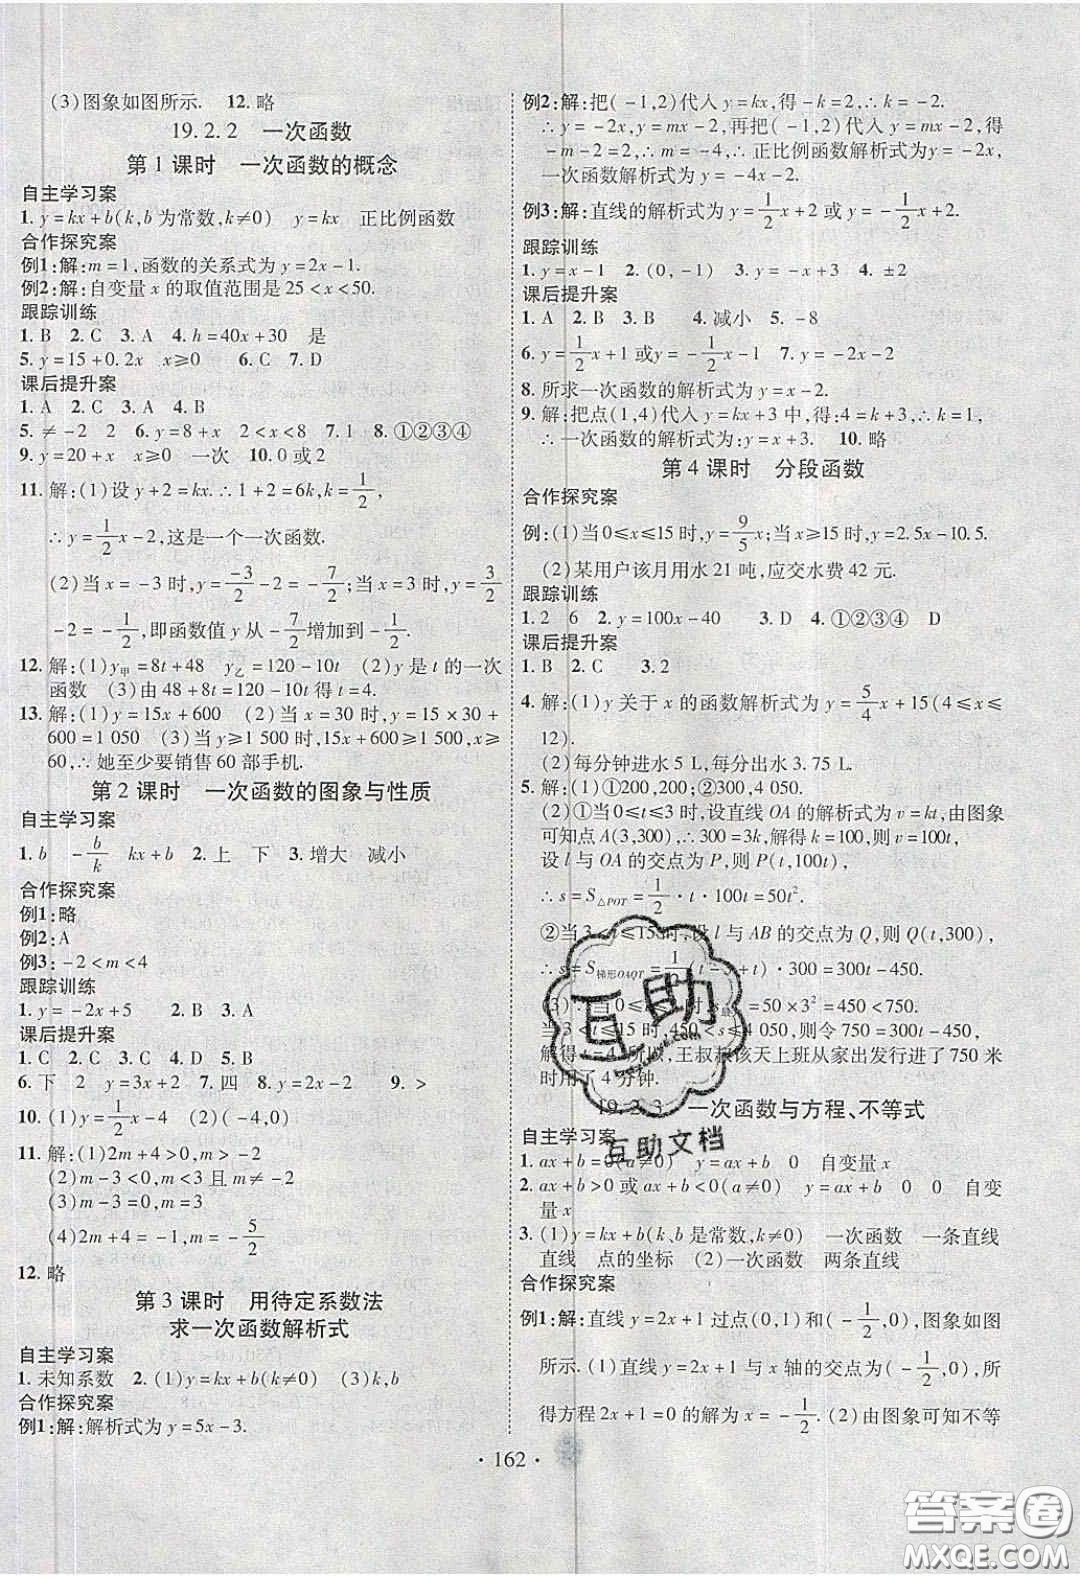 (3)图象如图所示. 12. 略
19.2.2 一次函数
第1课时 一次函数的概念
自主学习案
1. y=kx+b(k,b为常数,k≠0) y=kx 正比例函数
合作探究案
例1:解:m=1,函数的关系式为y=2x-1.
例2:解:自变量x的取值范围是25<x<50.
跟踪训练
1. B 2. C 3. A 4. h=40x+30 是
5. y=15+0.2x x≥0 6. C 7. D
课后提升案
1. A 2. C 3. A 4. B
5. ≠-2 2 6. y=8+x 2<x<8 7. 1 8. ①②③④
9. y=20+x x≥0 一次 10. 0或2
11. 解:(1)设y+2=kx.∴1+2=6k,k=1/2
∴y=1/2x-2,这是一个一次函数.
(2)当x=-3时,y=-3/2-2=-7/2;当x=3时,y=3/2
-2=-1/2,即函数值y从-7/2增加到-1/2.
12. 解:(1)y甲=8t+48 y乙=120-10t (2)y是t的一次
函数 (3)由48+8t=120-10t得t=4.
13. 解:(1)y=15x+600 (2)当x=30时,y=15×30+
600=1 050 (3)当y≥1 500时,15x+600≥1 500,x≥
60,∴她至少要销售60部手机.
第2课时 一次函数的图象与性质
自主学习案
1. b -b/k kx+b 2. 上 下 3. 增大 减小
合作探究案
例1:略
例2:A
例3:-2<m<4
跟踪训练
1. y=-2x+5 2. B 3. A
课后提升案
1. C 2. C 3. A 4. D 5. B
6. 下 2 y=3x+2 7. 四 8. y=2x-2 9. >
10. (1)y=1/2x-4 (2)(-4,0)
11. 解:(1)2m+4>0,m>-2
(2)m-3<0,m<3且m≠-2
(3)m-3=0,m=3
(4)2m+4=-1,m=-5/2
12. 略
第3课时 用待定系数法
求一次函数解析式
自主学习案
1. 未知系数 2. (1)y=kx+b(k≠0) (3)k,b
合作探究案
例1:解:解析式为y=5x-3.
例2:解:把(-1,2)代入y=kx,得-k=2,∴k=-2.
∴y=-2x,y=mx-2,再把(-1,2)代入y=mx-2,得
-m-2=2,∴m=-4;∴正比例函数解析式为y=-2x,
一次函数解析式为y=-4x-2.
例3:解:直线的解析式为y=1/2x+2或y=-1/2x+2.
跟踪训练
1. y=x-1 2. (0,-1) 3. y=-x+3 4. ±2
课后提升案
1. A 2. B 3. B 4. 减小 5. -8
6. y=1/2x+1或y=-1/2x-1 7. y=-2x-2
8. 所求一次函数的解析式为y=x-2.
9. 解:把点(1,4)代入y=kx+3中,得:4=k+3,∴k=1,
∴一次函数的解析式为:y=x+3. 10. 略
第4课时 分段函数
合作探究案
例:(1)当0≤x≤15时,y=9/5x;当x≥15时,y=2.5x-10.5.
(2)某用户该月用水21吨,应交水费42元.
跟踪训练
1. 2 6 2. y=100x-40 3. D 4. ①②③④ D
课后提升案
1. B 2. C 3. 2
4. 解:(1)y关于x的函数解析式为y=5/4x+15(4≤x≤
12).
(2)每分钟进水5 L,每分钟出水3.75 L.
5. 解:(1)①200,200;②300,4 050.
(2)①当0≤t≤3时,设直线OA的解析式为v=kt,由图象
可知点A(3,300),∴300=3k,解得k=100,则v=100t,
设l与OA的交点为P,则P(t,100t),
∴s=S△POT=1/2·t·100t=50t².
②当3<t≤15时,设l与AB的交点为Q,则Q(t,300),
∴s=S梯形OAQT=1/2(t-3+t)·300=300t-450.
(3)∵当0≤t≤3时,s最大=50×3²=450<750.
当3<t≤15时,450<s≤4 050,则令750=300t-450,
解得t=4.所以,王叔叔该天上班从家出发行进了750米
时用了4分钟.
19.2.3 一次函数与方程、不等式
自主学习案
1. ax+b=0(a≠0) y=ax+b 0 自变量x
2. ax+b>0或ax+b<0(a≠0) y=ax+b 0 0 自变
量x
3. (1)y=kx+b(k、b是常数,k≠0) 一次函数 一条直线
直线 点的坐标 (2)一次函数 两条直线
合作探究案
例1:解:直线y=2x+1过点(0,1)和(-1/2,0),图象如图
所示.(1)直线y=2x+1与x轴的交点为(-1/2,0),所
得方程2x+1=0的解为x=-1/2.(2)由图象可知不等
·162·
互助
互助文档
答案圈
MXQE.COM